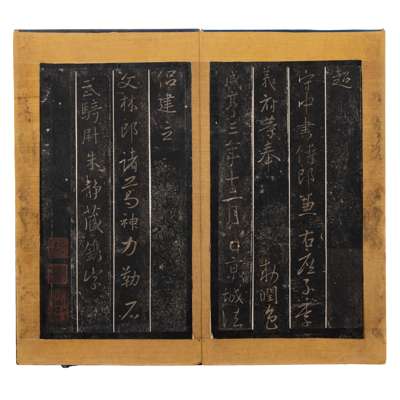 超
守中書侍郎兼右庶子李
義府等奉 勅潤色
咸亨三年十二月八日京城法
侶建立
文林郎諸葛神力勒石
武騎尉朱靜藏鐫字